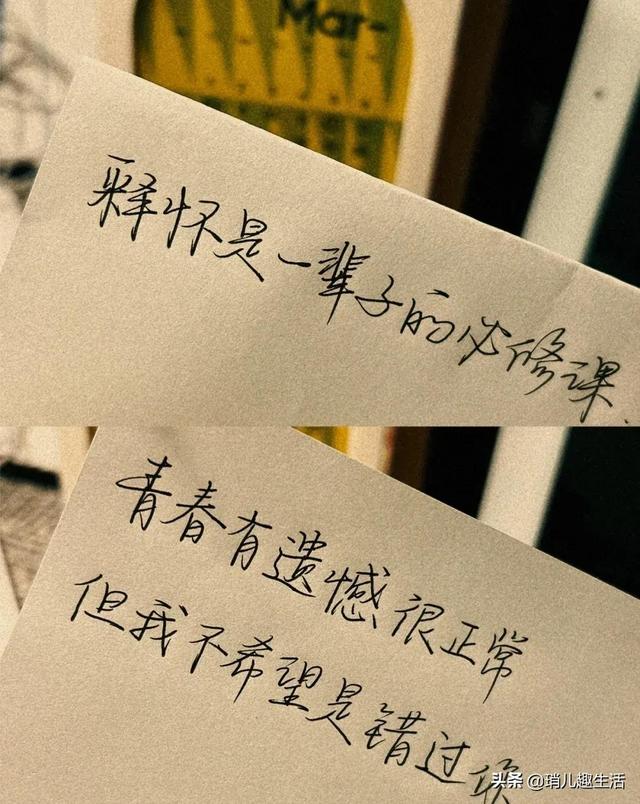 Mar-
释怀是一辈子的必修课.
青春有遗憾很正常
但我不希望是错过你
头条 @琑儿趣生活